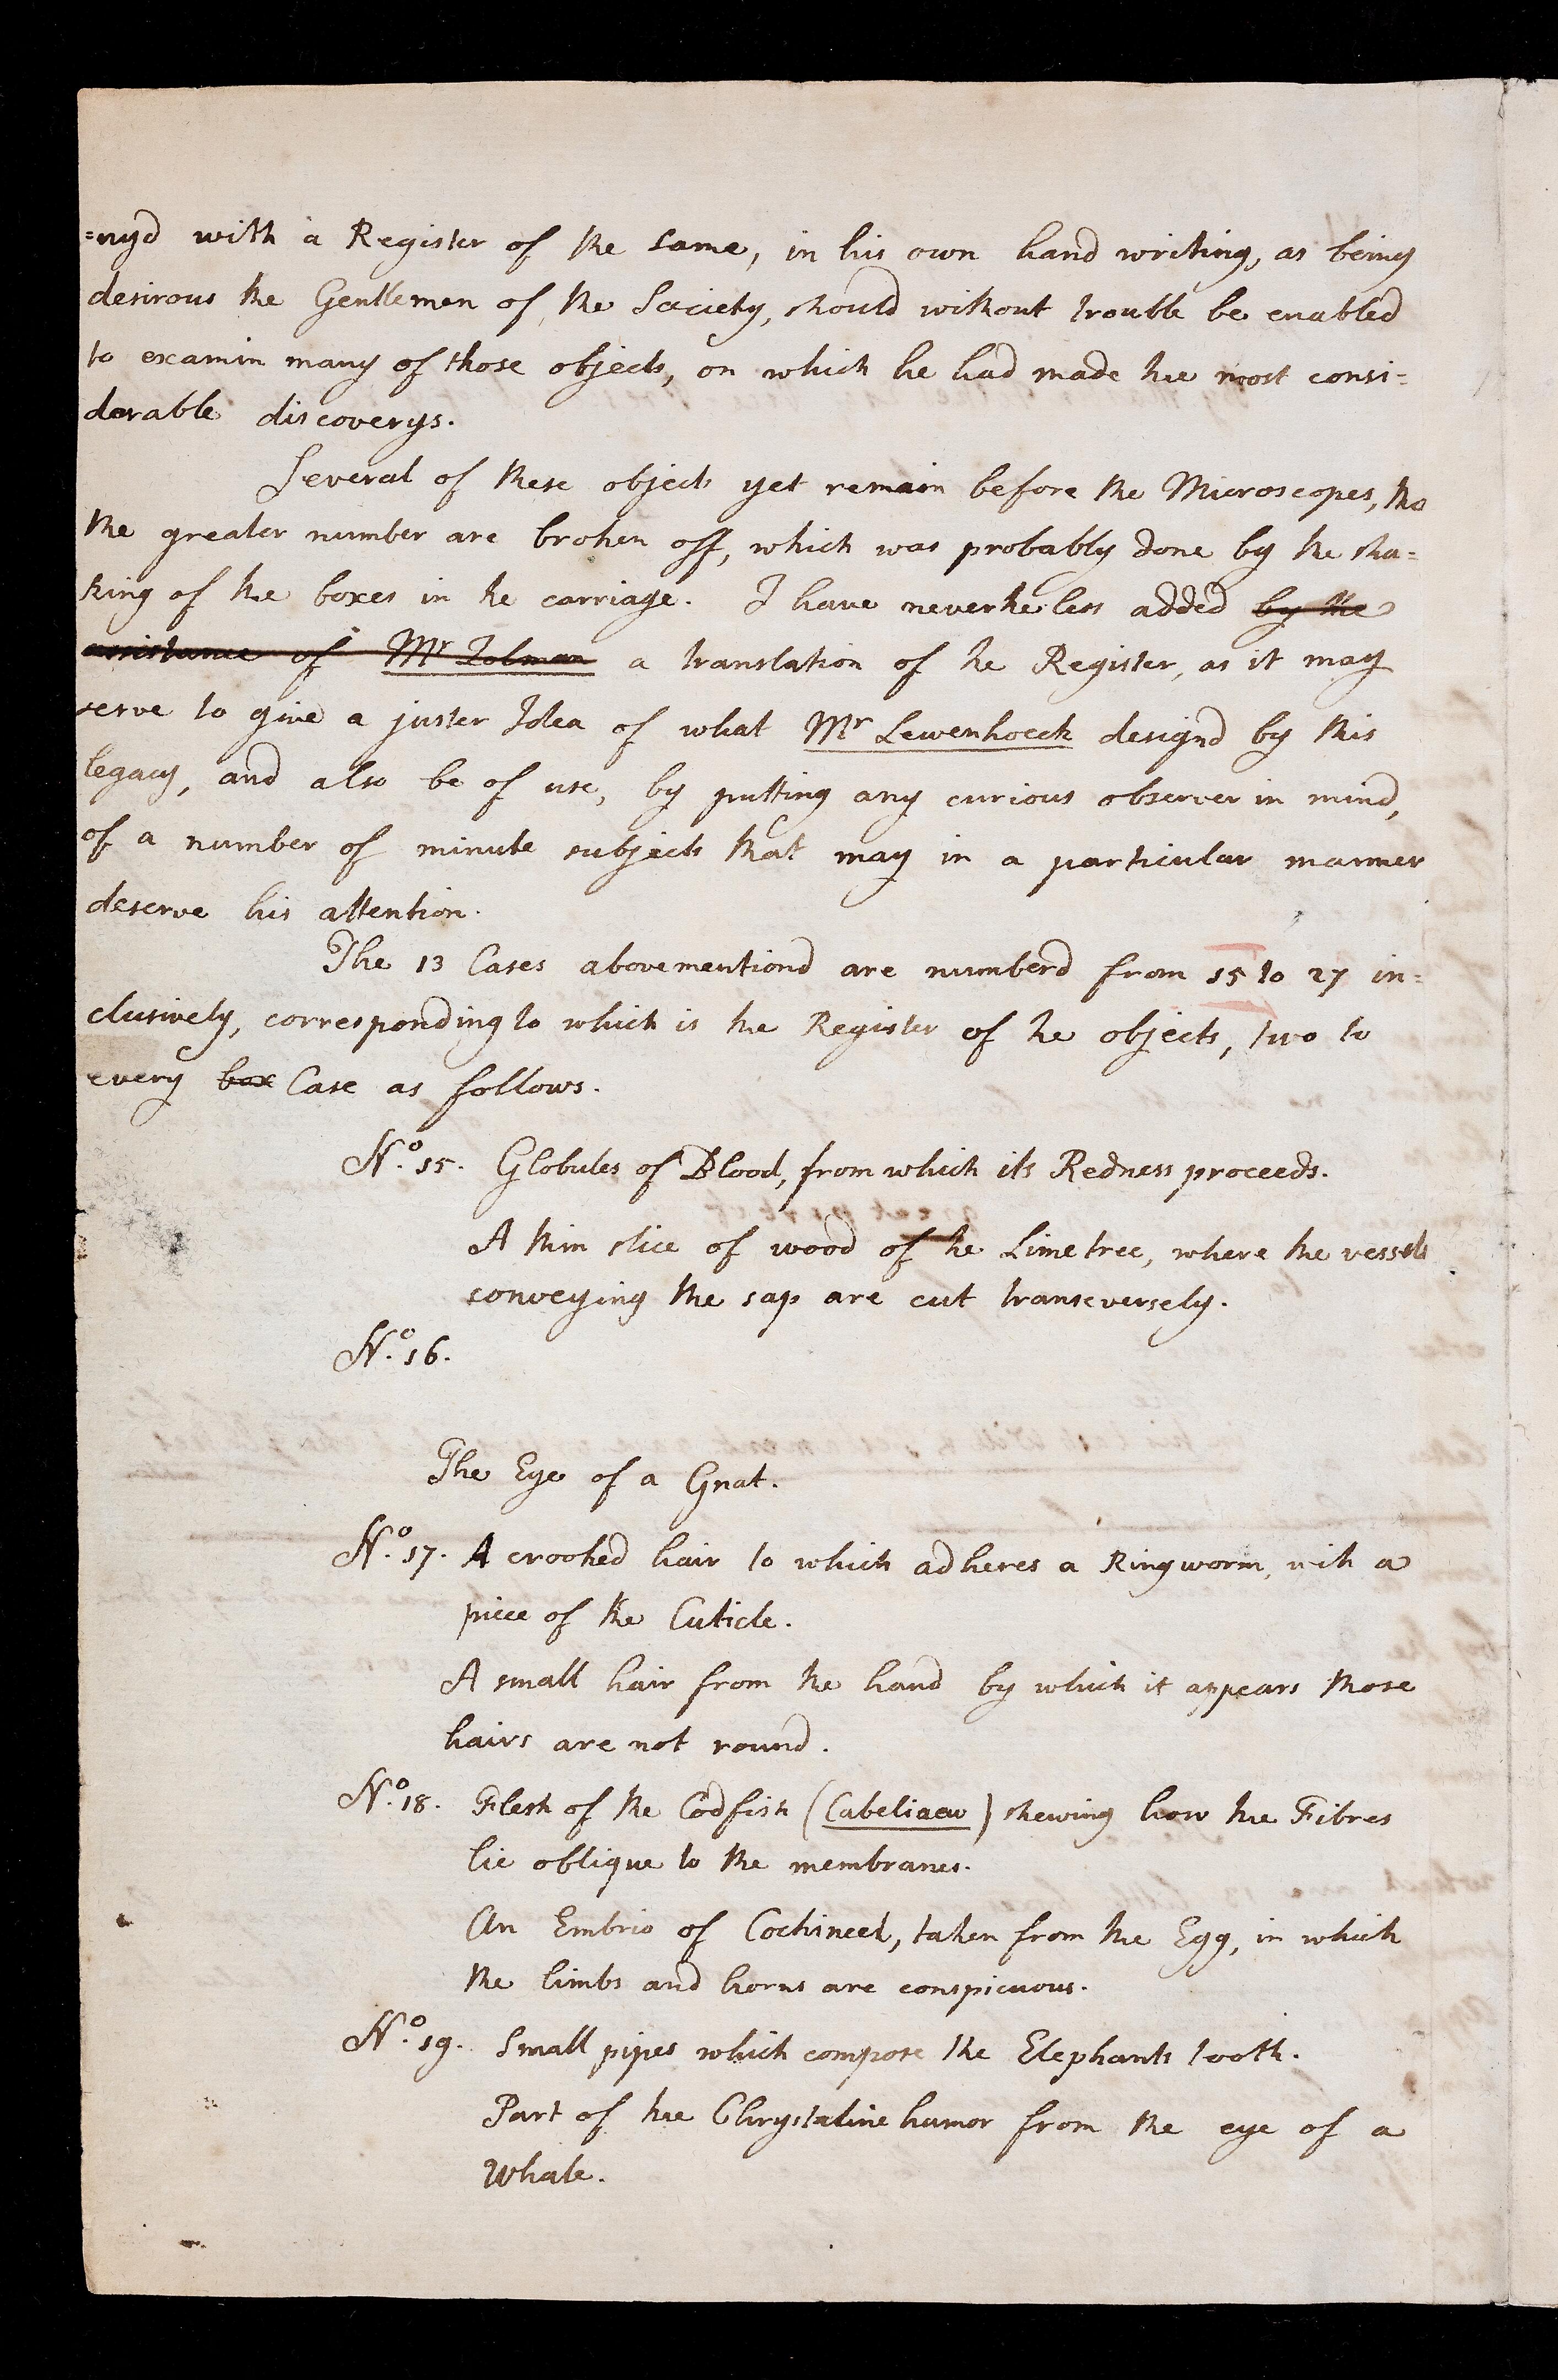 =nyd with a Register of the same, in his own hand writing, as being
desirous the Gentlemen of the Society, should without trouble be enabled
to examin many of those objects, on which he had made his most consi=
derable discoverys.
Several of these objects yet remain before the Microscopes, tho
the greater number are broken off, which was probably done by the sha=
king of the boxes in the carriage. I have nevertheless added by the
assistance of Mr Zolman a translation of the Register, as it may
serve to give a juster Idea of what Mr Lewenhoeck designd by this
legacy, and also be of use, by putting any curious observer in mind,
of a number of minute subjects that may in a particular manner
deserve his attention.
The 13 Cases abovementiond are numberd from 15 to 27 in=
clusively, corresponding to which is the Register of the objects, two to
every box Case as follows.
No. 15. Globules of Blood, from which its Redness proceeds.
A thin slice of wood of the Lime tree, where the vessels
conveying the sap are cut transeversely.
No. 16.
The Eye of a Gnat.
No. 17. A crooked hair to which adheres a Ringworm, with a
piece of the Cuticle.
A small hair from the hand by which it appears those
hairs are not round.
No. 18. Flesh of the Codfish (Cabeliaew) shewing how the Fibres
lie oblique to the membranes.
An Embrio of Cochineel, taken from the Egg, in which
the limbs and horns are conspicuous.
No. 19. Small pipes which compose the Elephants tooth.
Part of the Chrystaline humor from the eye of a
Whale.